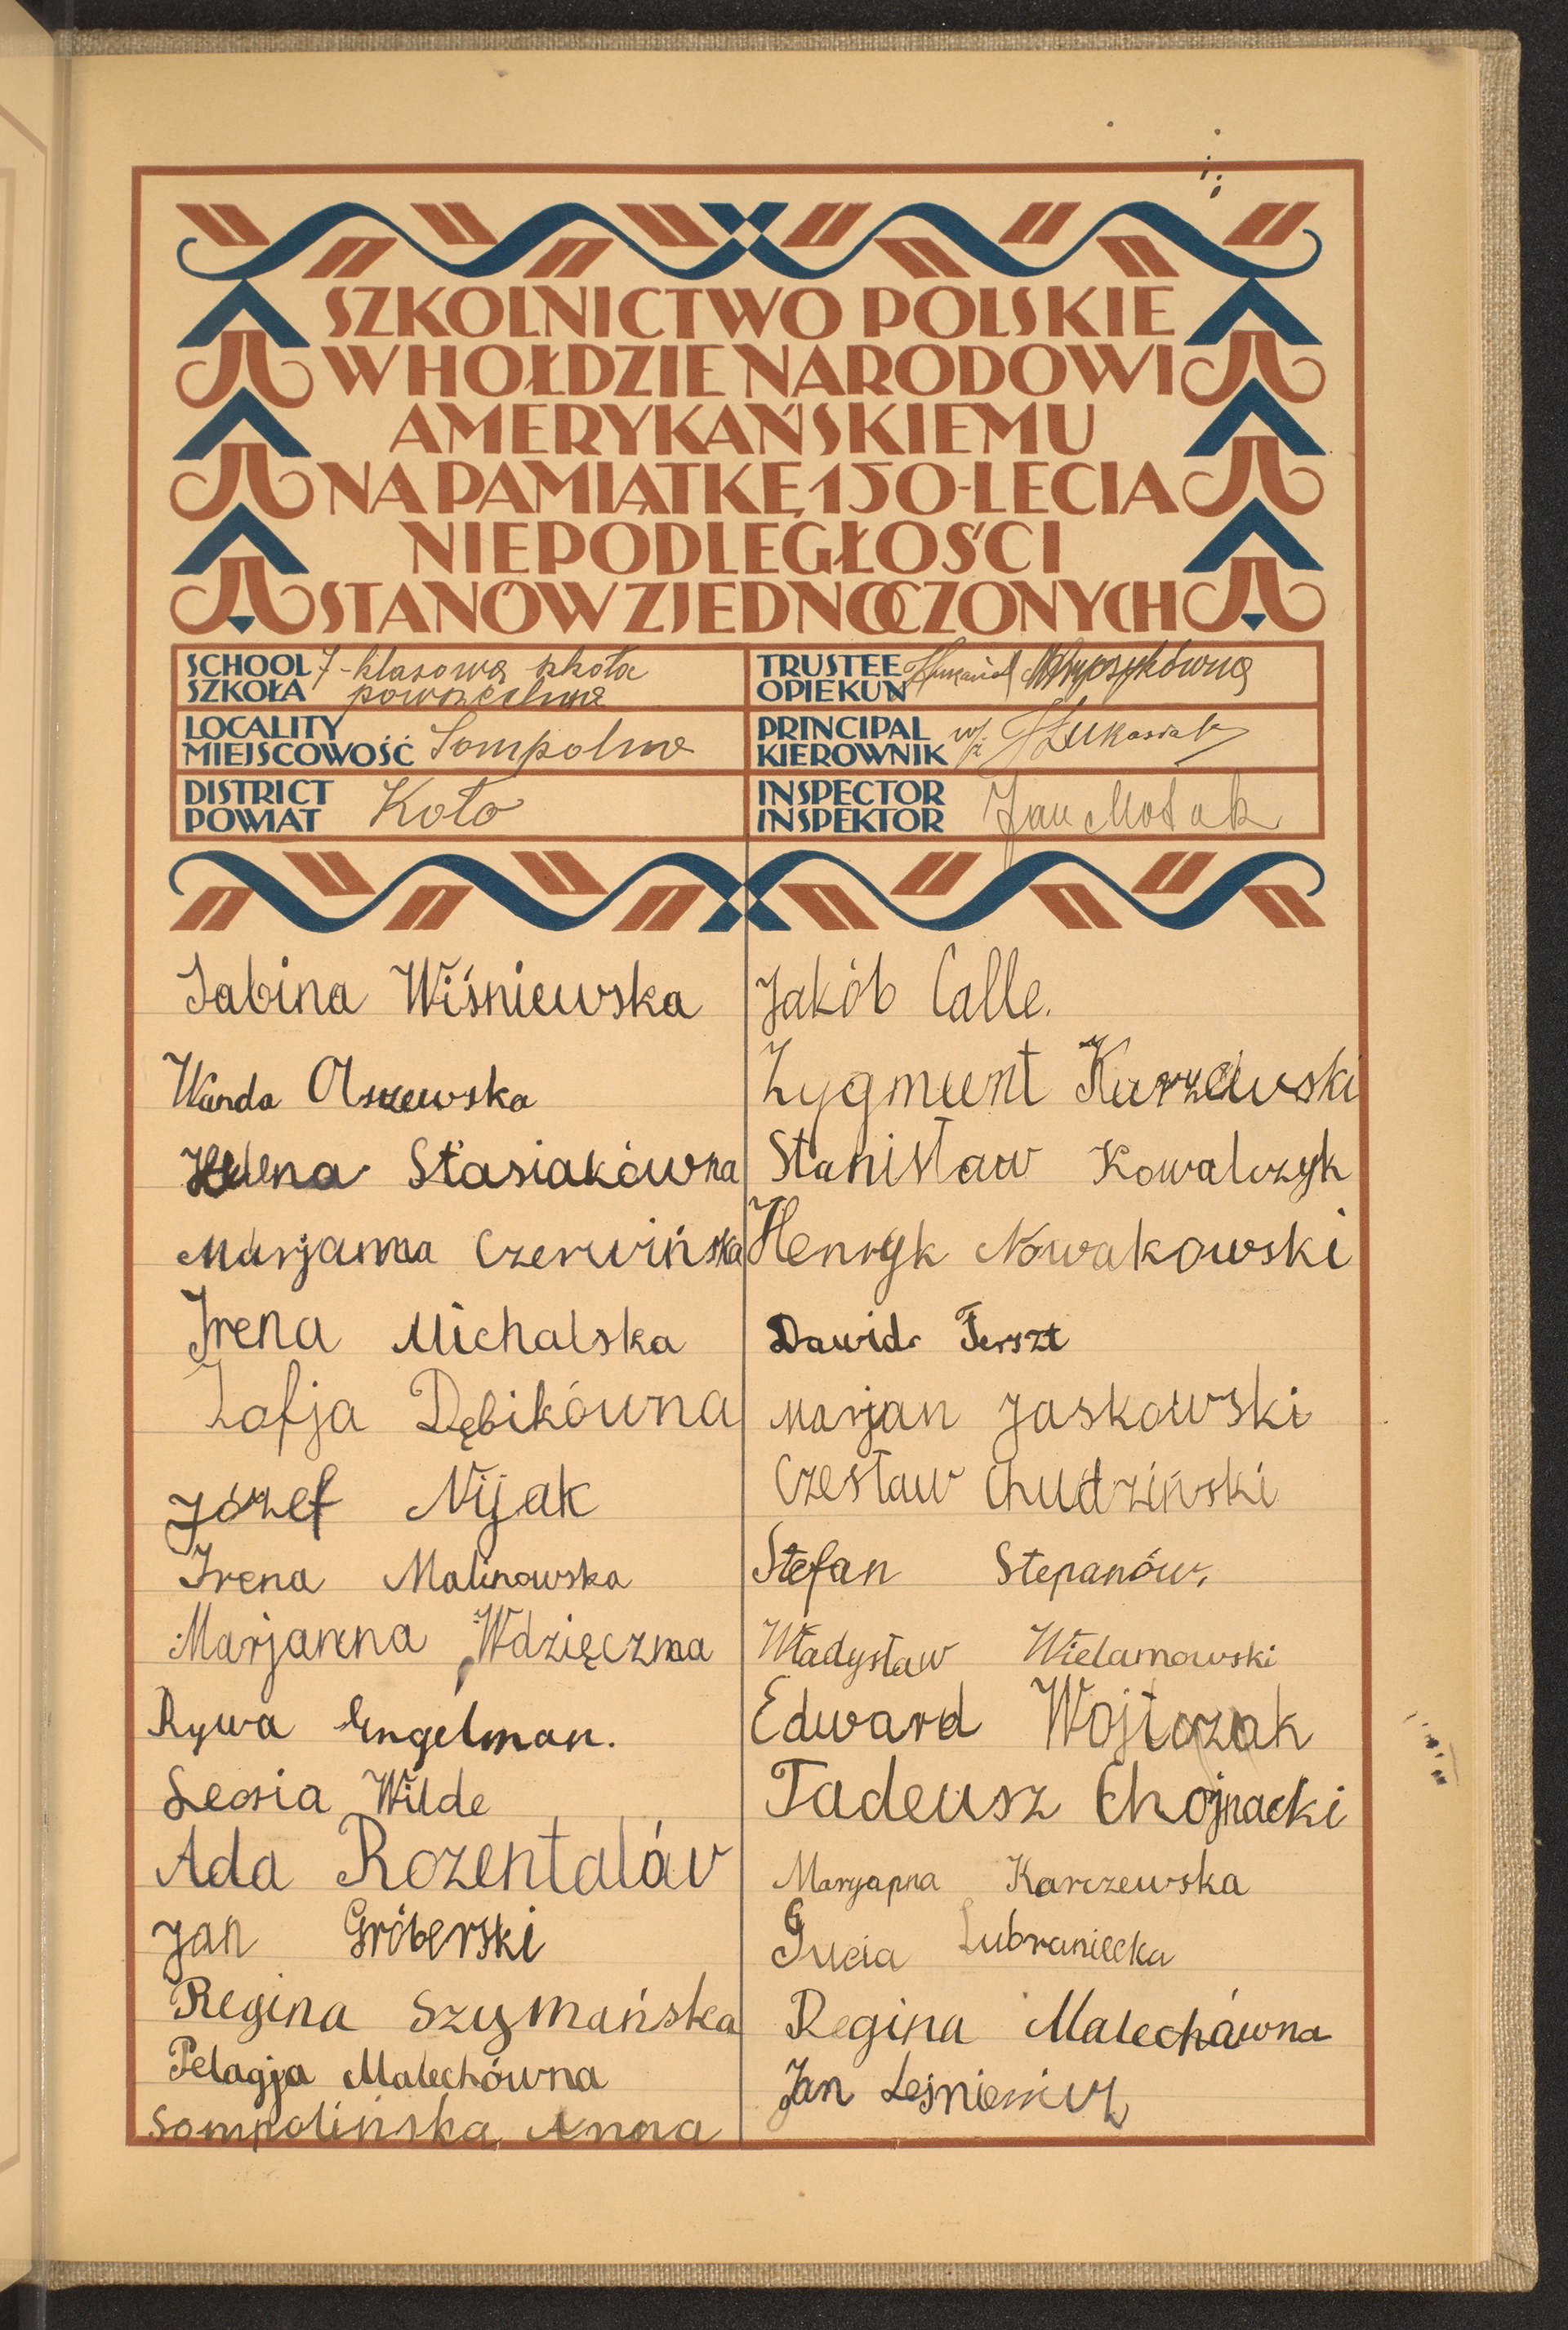 SZKOLNICTWO POLSKIE
W HOŁDZIE NARODOWI
AMERYKAŃSKIEMU
NA PAMIĄTKĘ 150-LECIA
NIEPODLEGŁOŚCI
STANÓW ZJEDNOCZONYCH
SCHOOL 7-klasowa szkoła
SZKOŁA powszechna
TRUSTEE
OPIEKUN
LOCALITY
MIEJSCOWOŚĆ Sompolno
PRINCIPAL
KIEROWNIK w/z Łukasiak
DISTRICT
POWIAT Koło
INSPECTOR
INSPEKTOR Jan
Sabina Wiśniewska
Wanda Olszewska
Helena Stasiakówna
Marjanna Czerwińska
Irena Michalska
Zofja Dębikówna
Józef Nijak
Irena Malinowska
Marjanna Wdzięczna
Rywa Engelman.
Leosia Wilde
Ada Rozentalów
Jan Gróberski
Regina Szymańska
Pelagja Malechówna
Sompolińska Anna
Jakób Calle.
Zygmunt Kurzewski
Stanisław Kowalczyk
Henryk Nowakowski
Dawid Ferszt
Marjan Jaskowski
Czesław Chudziński
Stefan Stepanów.
Władysław Wielamowski
Edward Wojtczak
Tadeusz Chojnacki
Maryanna Karczewska
Gucia Lubraniecka
Regina Malechówna
Jan Leśniewicz